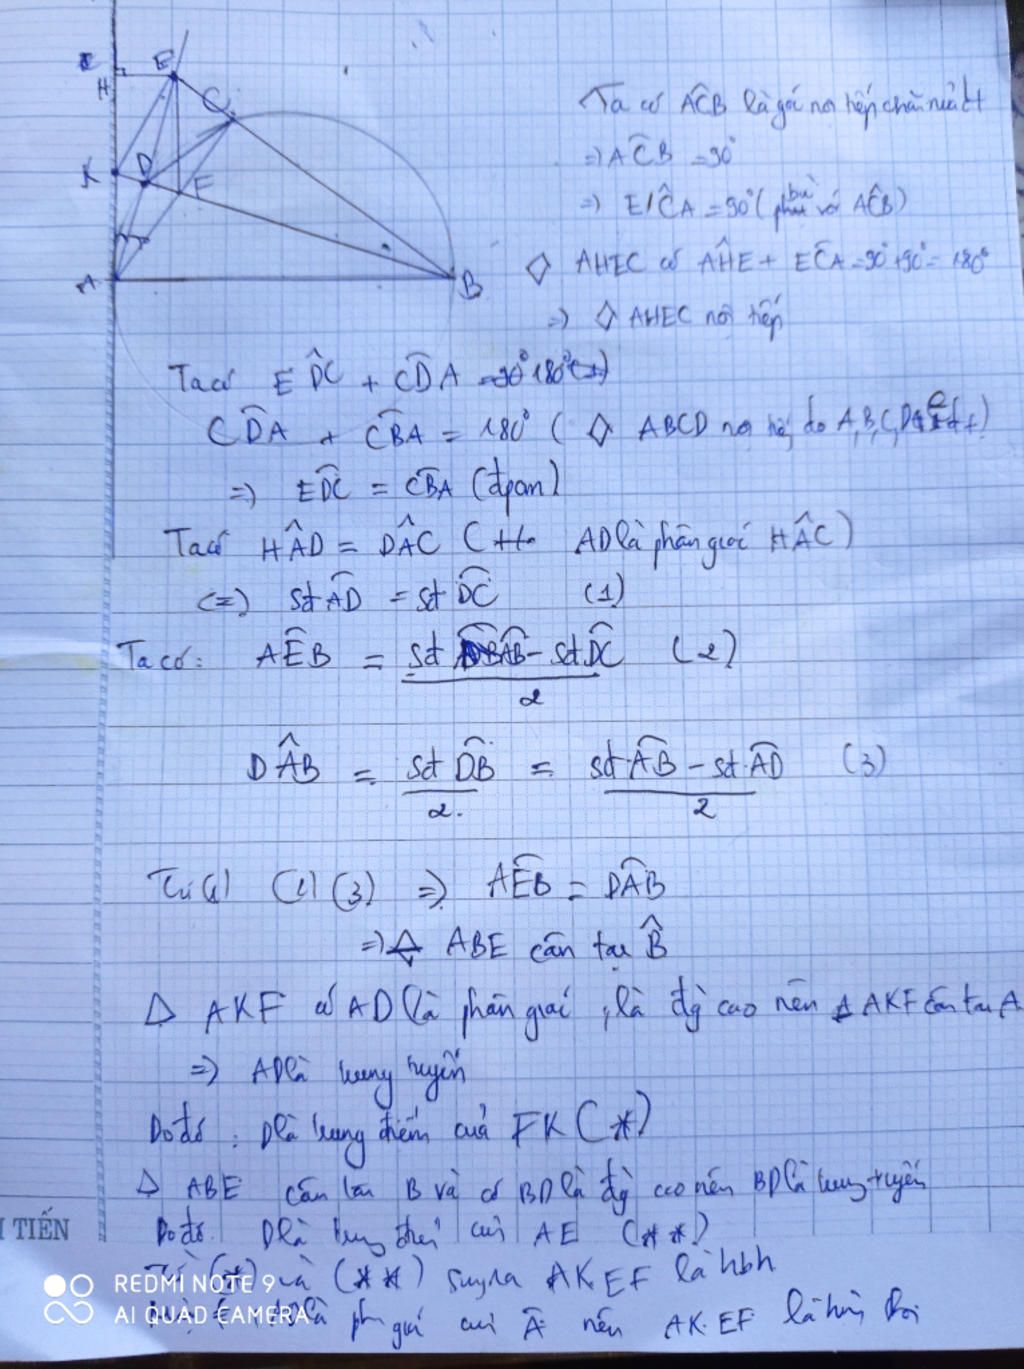 H
E
C
K
D
F
A
B
Ta có ACB là góc nội tiếp chắn nửa đt
=> ACB = 90°
=> ECA = 90° (bù với ACB)
◇ AHEC có AHE + ECA = 90° + 90° = 180°
=> ◇ AHEC nội tiếp
Ta có EDC + CDA = 180°
CDA + CBA = 180° (◇ ABCD nội tiếp do A,B,C,D
=> EDC = CBA (đpcm)
Ta có HAD = DAC ( AD là phân giác HAC)
(=) sđ AD = sđ DC (1)
Ta có: AEB = sđ AB - sđ DC (2)
2
DAB = sđ DB = sđ AB - sđ AD (3)
2. 2
Từ (1) (2) (3) => AEB = DAB
=> △ ABE cân tại B
△ AKF có AD là phân giác, là đg cao nên △ AKF cân tại A
=> AD là trung tuyến
Do đó: D là trung điểm của FK (*)
△ ABE cân tại B và có BD là đg cao nên BD là trung tuyến
Do đó: D là trung điểm của AE (**)
Từ (*) và (**) suy ra AKEF là hbh
là phân giác của A nên AKEF là hình thoi
TIẾN
REDMI NOTE 9
AI QUAD CAMERA